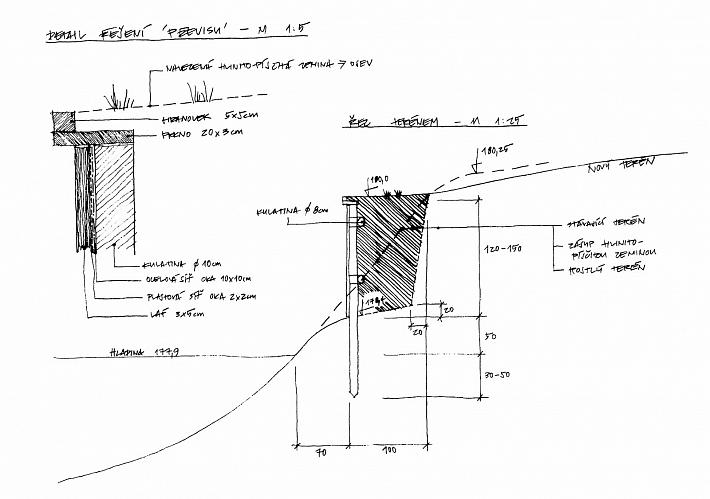 DETAIL ŘEŠENÍ 'PŘEVISU' - M 1:5
NAVEZENÁ HLINITO-PÍSČITÁ ZEMINA ⇒ OSEV
HRANOLEK 5x5cm
PRKNO 20x3cm
KULATINA ø 10cm
OCELOVÁ SÍŤ OKA 10x10cm
PLASTOVÁ SÍŤ OKA 2x2cm
LAŤ 3x5cm
ŘEZ TERÉNEM - M 1:25
180,25
180,0
NOVÝ TERÉN
KULATINA ø 8cm
STÁVAJÍCÍ TERÉN
ZÁSYP HLINITO-
PÍSČITOU ZEMINOU
ROSTLÝ TERÉN
120-150
20
20
50
HLADINA 177,9
30-50
70
100